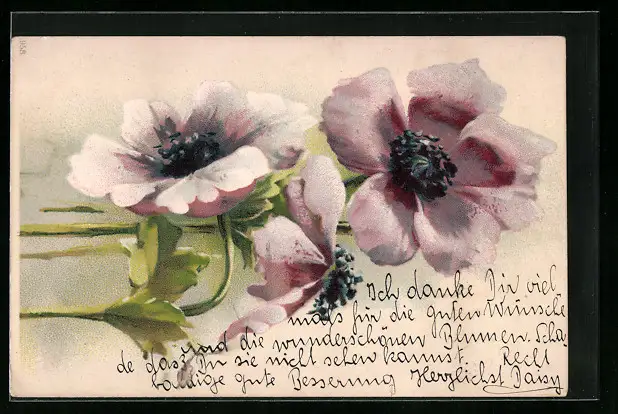 Ich danke Dir viel
mals für die guten Wünsche
und die wunderschönen Blumen. Scha-
de dass Du sie nicht sehen kannst. Recht
baldige gute Besserung Herzlichst Daisy